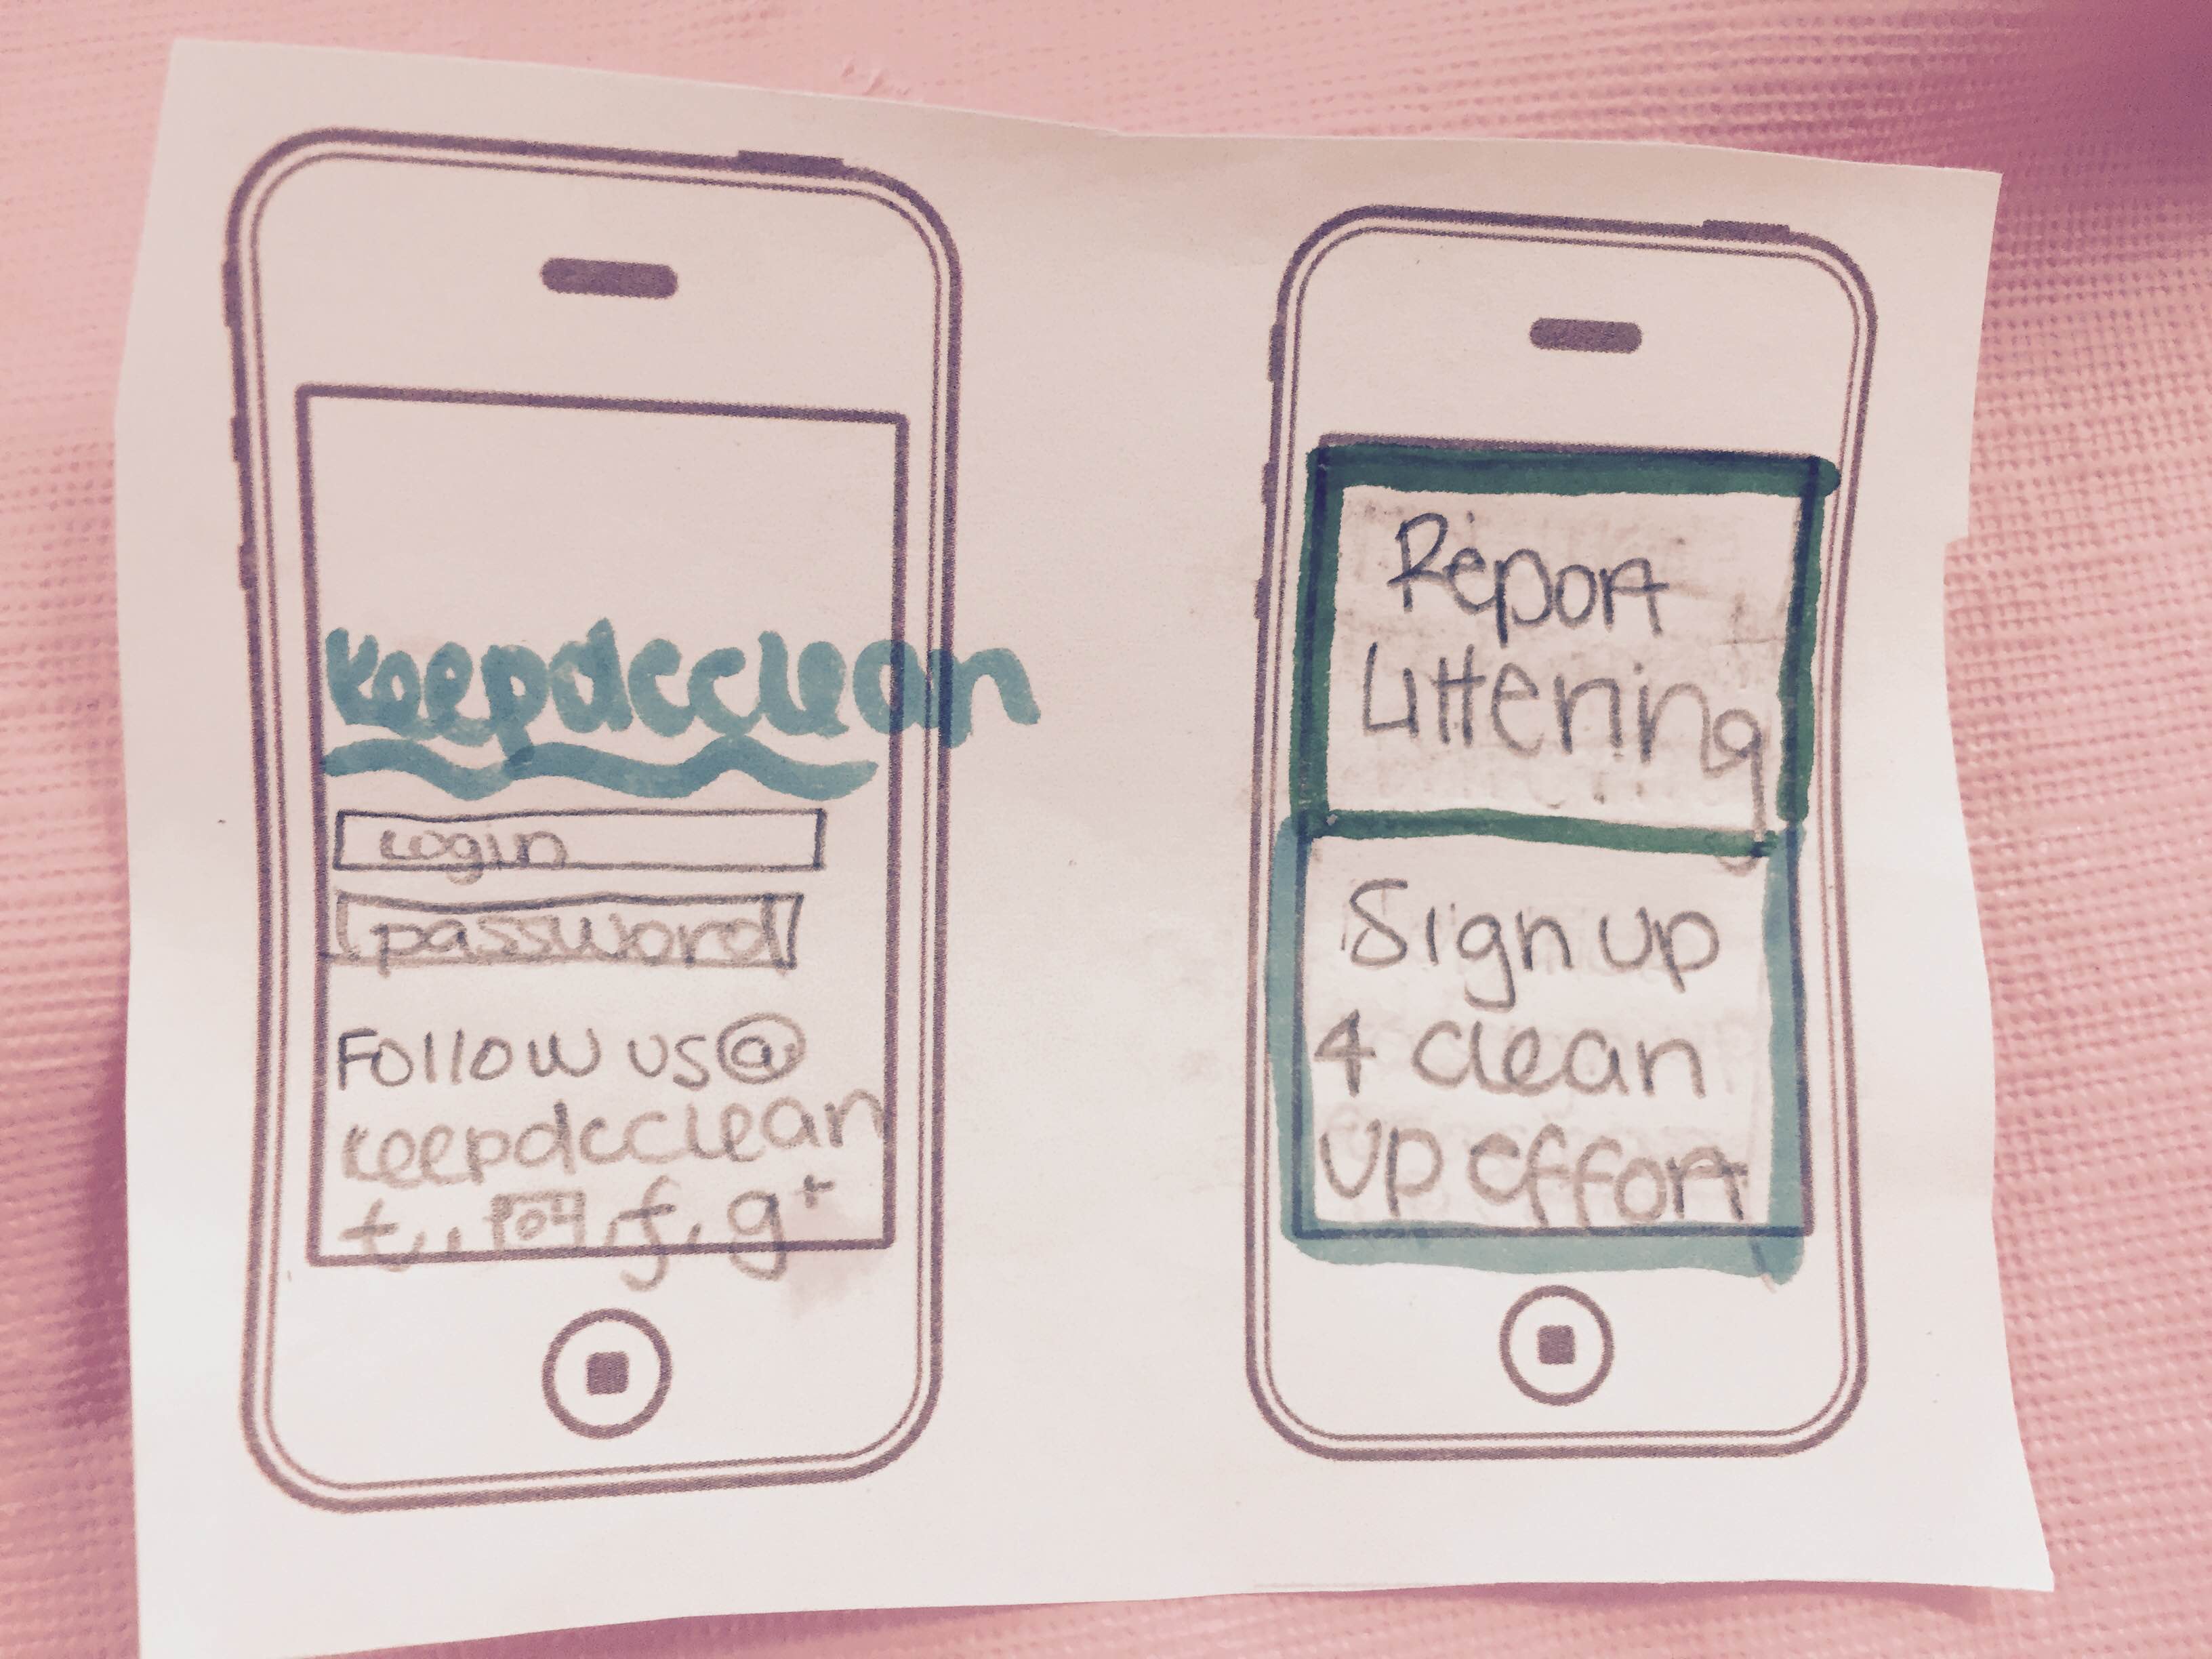 keepdcclean
login
password
Follow us @
keepdcclean
t, f, g+
Report
Littering
Sign up
4 clean
up effort